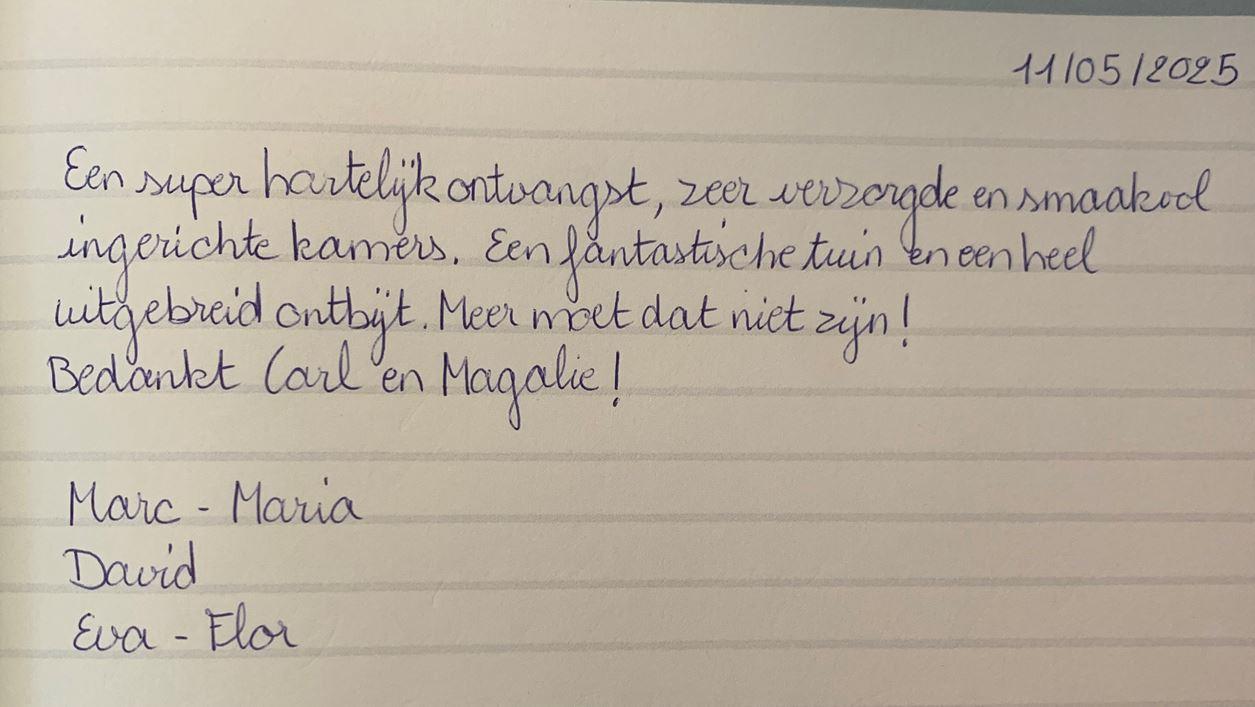 11/05/2025
Een super hartelijk ontvangst, zeer verzorgde en smaakvol
ingerichte kamers. Een fantastische tuin en een heel
uitgebreid ontbijt. Meer moet dat niet zijn!
Bedankt Carl en Magalie!
Marc - Maria
David
Eva - Flor